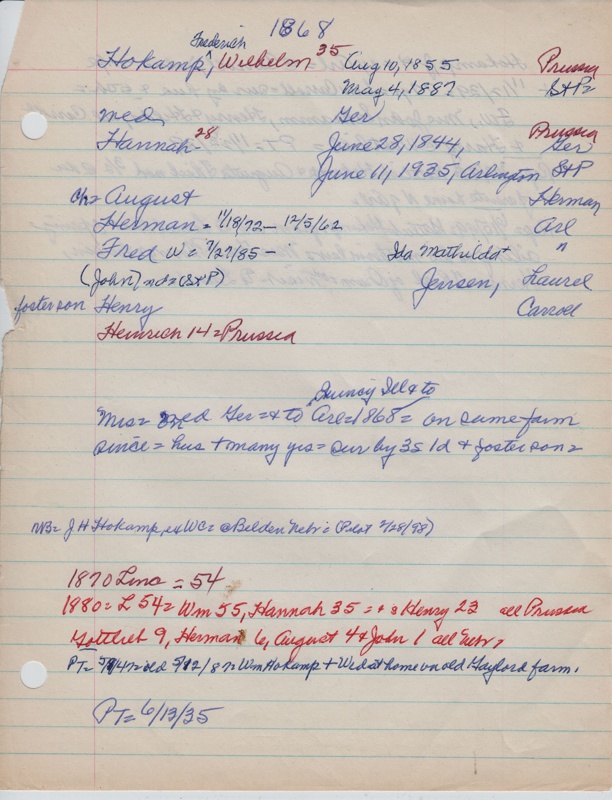 1868
Frederich
Hokamp, Wilhelm 35 Aug 10, 1855 Prussia
May 4, 1887 S+P=
med, Ger
Hannah 28 June 28, 1844, Prussia Ger
June 11, 1935, Arlington S+P
ch= August Herman
Herman = 11/18/72 - 12/5/62 Arl
Fred W = 7/27/85 - Ida Mathilda + "
(John) not= (S+P) Jensen, Laurel
foster son Henry Carrol
Heinrich 14 = Prussia
Quincy Ill & to
Mrs= med Ger = & to Arl = 1868 = on same farm
since = hus + many yrs = sur by 3S 1d & foster son =
NB= J H Hokamp, ex WC = @ Belden Nebr = (Pilot 7/28/98)
1870 Line = 54
1880 = L 54 = Wm 55, Hannah 35 = + s Henry 23 all Prussia
Gottlieb 9, Herman 6, August 4 & John 1 all Nebr,
PT= 5/12/87= Wm Hokamp + Wed at home on old Gaylord farm.
PT= 6/13/35